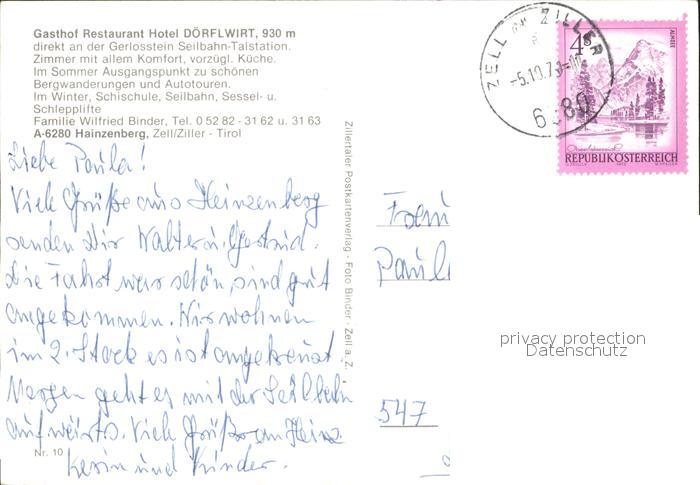 Gasthof Restaurant Hotel DÖRFLWIRT, 930 m
direkt an der Gerlosstein Seilbahn-Talstation.
Zimmer mit allem Komfort, vorzügl. Küche.
Im Sommer Ausgangspunkt zu schönen
Bergwanderungen und Autotouren.
Im Winter, Schischule, Seilbahn, Sessel- u.
Schlepplifte
Familie Wilfried Binder, Tel. 0 52 82 - 31 62 u. 31 63
A-6280 Hainzenberg, Zell/Ziller - Tirol
Liebe Paula!
Viele Grüße aus Heinzenberg
senden Dir Walter u.
Die Fahrt war schön, sind gut
angekommen. Wir wohnen
im 2. Stock es ist
Morgen geht es mit der Seilbahn
aufwärts. Viele Grüße an Heinz
Karin und Kinder.
Nr. 10
Zillertaler Postkartenverlag - Foto Binder - Zell a. Z.
ZELL am ZILLER
6280
4 S
ALMSEE
Oberösterreich
REPUBLIK ÖSTERREICH
Frau
Paul
547
privacy protection
Datenschutz